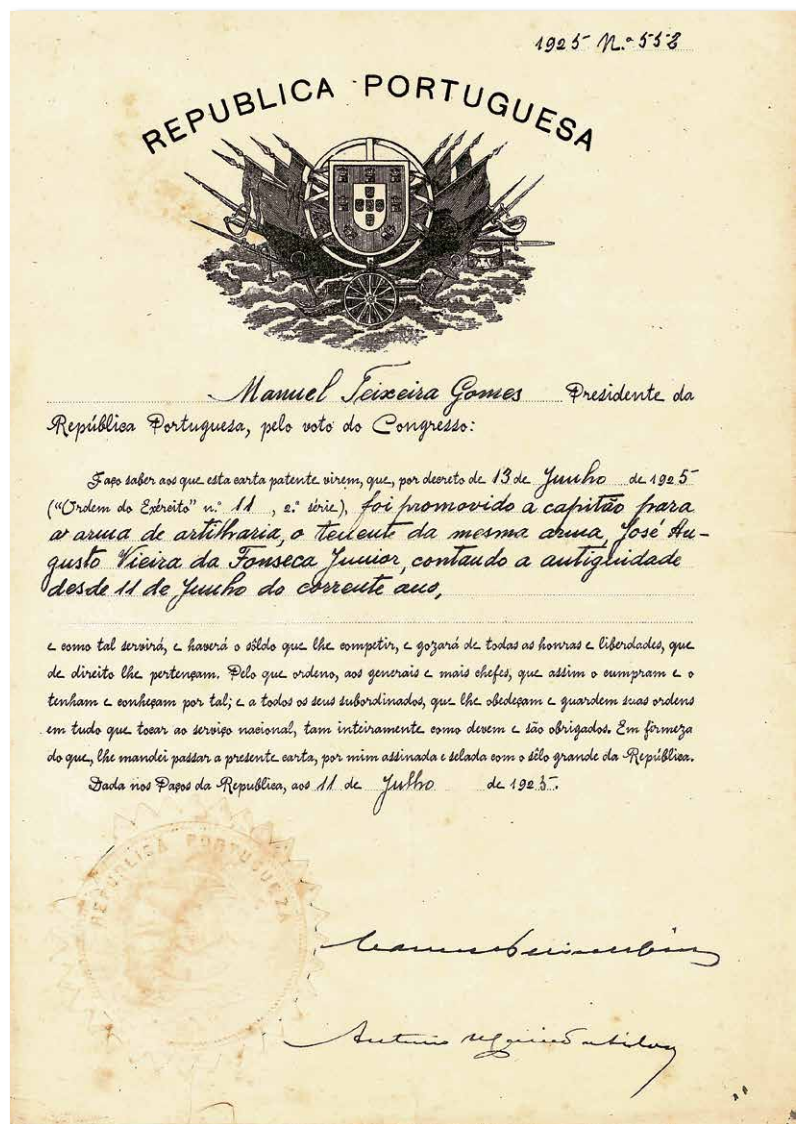 1925 N.º 558
REPUBLICA PORTUGUESA
Manuel Teixeira Gomes Presidente da
República Portuguesa, pelo voto do Congresso:
Faço saber aos que esta carta patente virem, que, por decreto de 13 de Junho de 1925
("Ordem do Exército" n.º 11, 2.ª série), foi promovido a capitão para
a arma de artilharia, o tenente da mesma arma, José Au-
gusto Vieira da Fonseca Junior, contando a antiguidade
desde 11 de Junho do corrente ano,
e como tal servirá, e haverá o sôldo que lhe competir, e gozará de todas as honras e liberdades, que
de direito lhe pertençam. Pelo que ordeno, aos generais e mais chefes, que assim o cumpram e o
tenham e conheçam por tal; e a todos os seus subordinados, que lhe obedeçam e guardem suas ordens
em tudo que tocar ao serviço nacional, tam inteiramente como devem e são obrigados. Em firmeza
do que, lhe mandei passar a presente carta, por mim assinada e selada com o sêlo grande da República.
Dada nos Paços da Republica, aos 11 de Julho de 1925.
REPUBLICA PORTUGUEZA
Antonio da Silva